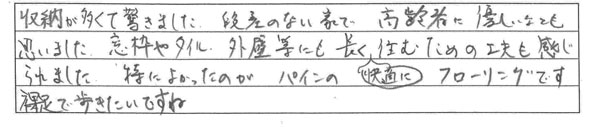 収納が多くて驚きました。段差のない家で 高齢者に優しいなとも
思いました。窓枠やタイル、外壁等にも長く住むための工夫も感じ
られました。特によかったのが パインの(快適に)フローリングです
裸足で歩きたいですね